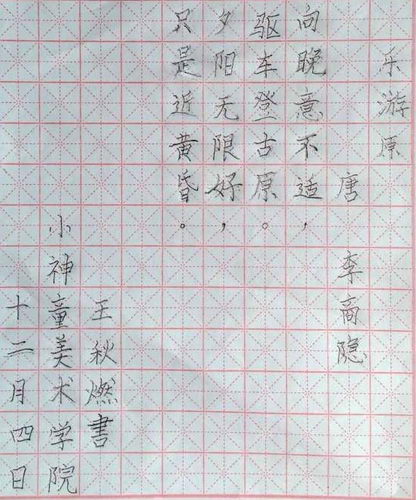 乐游原
唐 李商隐
向晚意不适，
驱车登古原。
夕阳无限好，
只是近黄昏。
王秋燃書
小神童美术学院
十二月四日